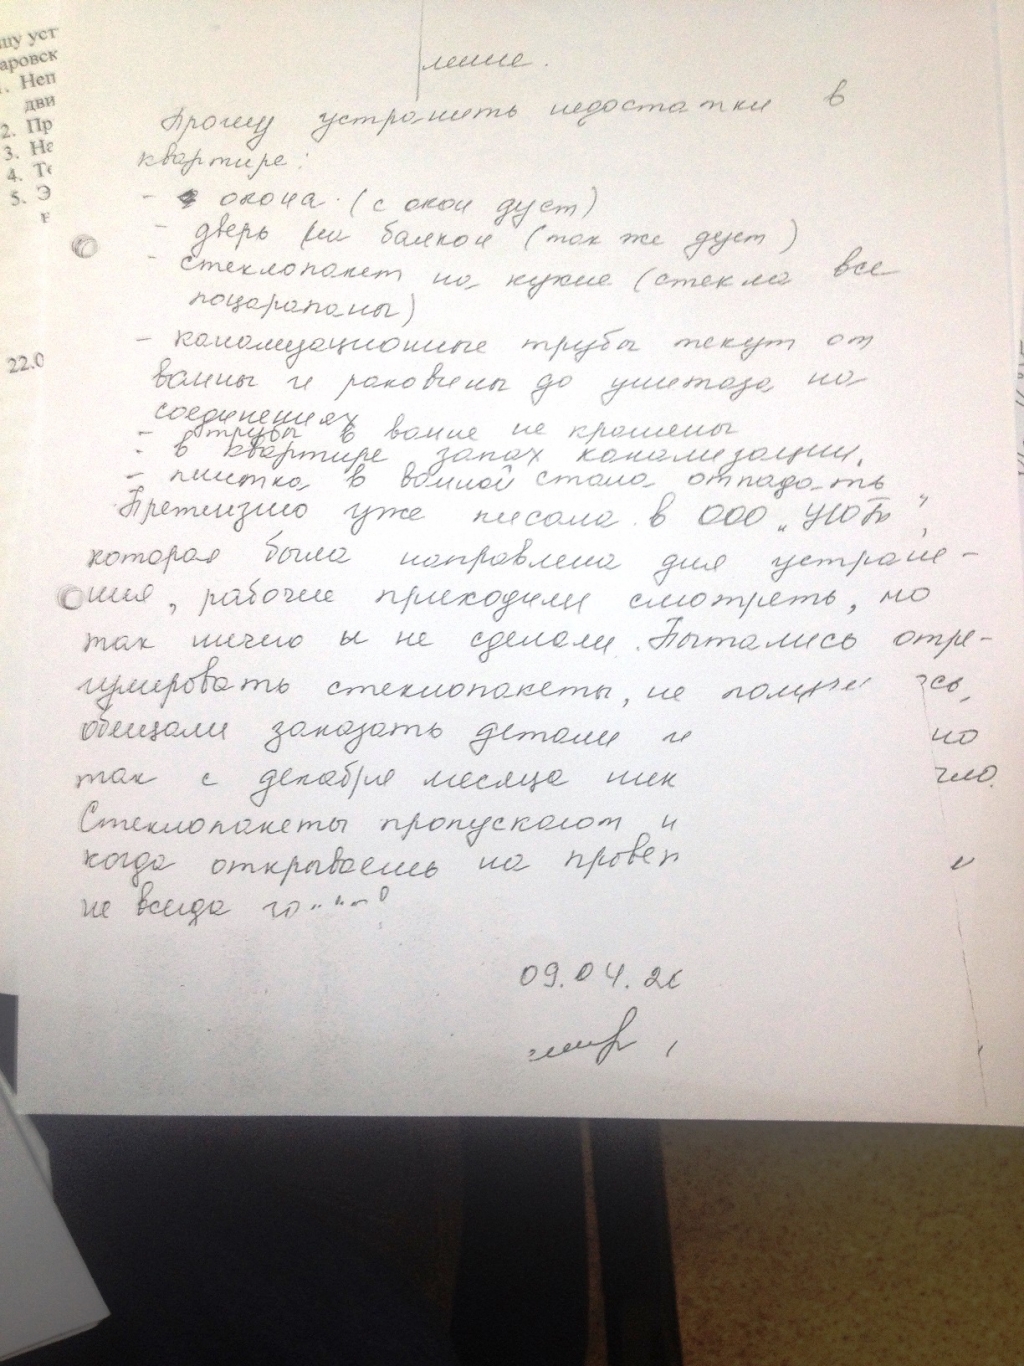 шу уст
аровск
1. Неп
дви
2. Пр
3. Не
4. Те
5. Э
22.0
ление.
Прошу устранить недостатки в
квартире:
- окона (с окон дуст)
- дверь на балкон (так же дуст)
- стеклопакет на кухне (стекла все
поцарапаны)
- канализационные трубы текут от
ванны и раковины до унитаза на
соединениях
- трубы в ванне не крашены
- в квартире запах канализации.
- плитка в ванной стала отпадать
Претензию уже писала в ООО „УЮТ",
которая была направлена для устране-
ния, рабочие приходили смотреть, но
так ничего и не сделали. Пытались отре-
гулировать стеклопакеты, не
обещали заказать детали и но
так с декабря месяца ник
Стеклопакеты пропускают
когда открываешь на провет
не всегда
09.04.2